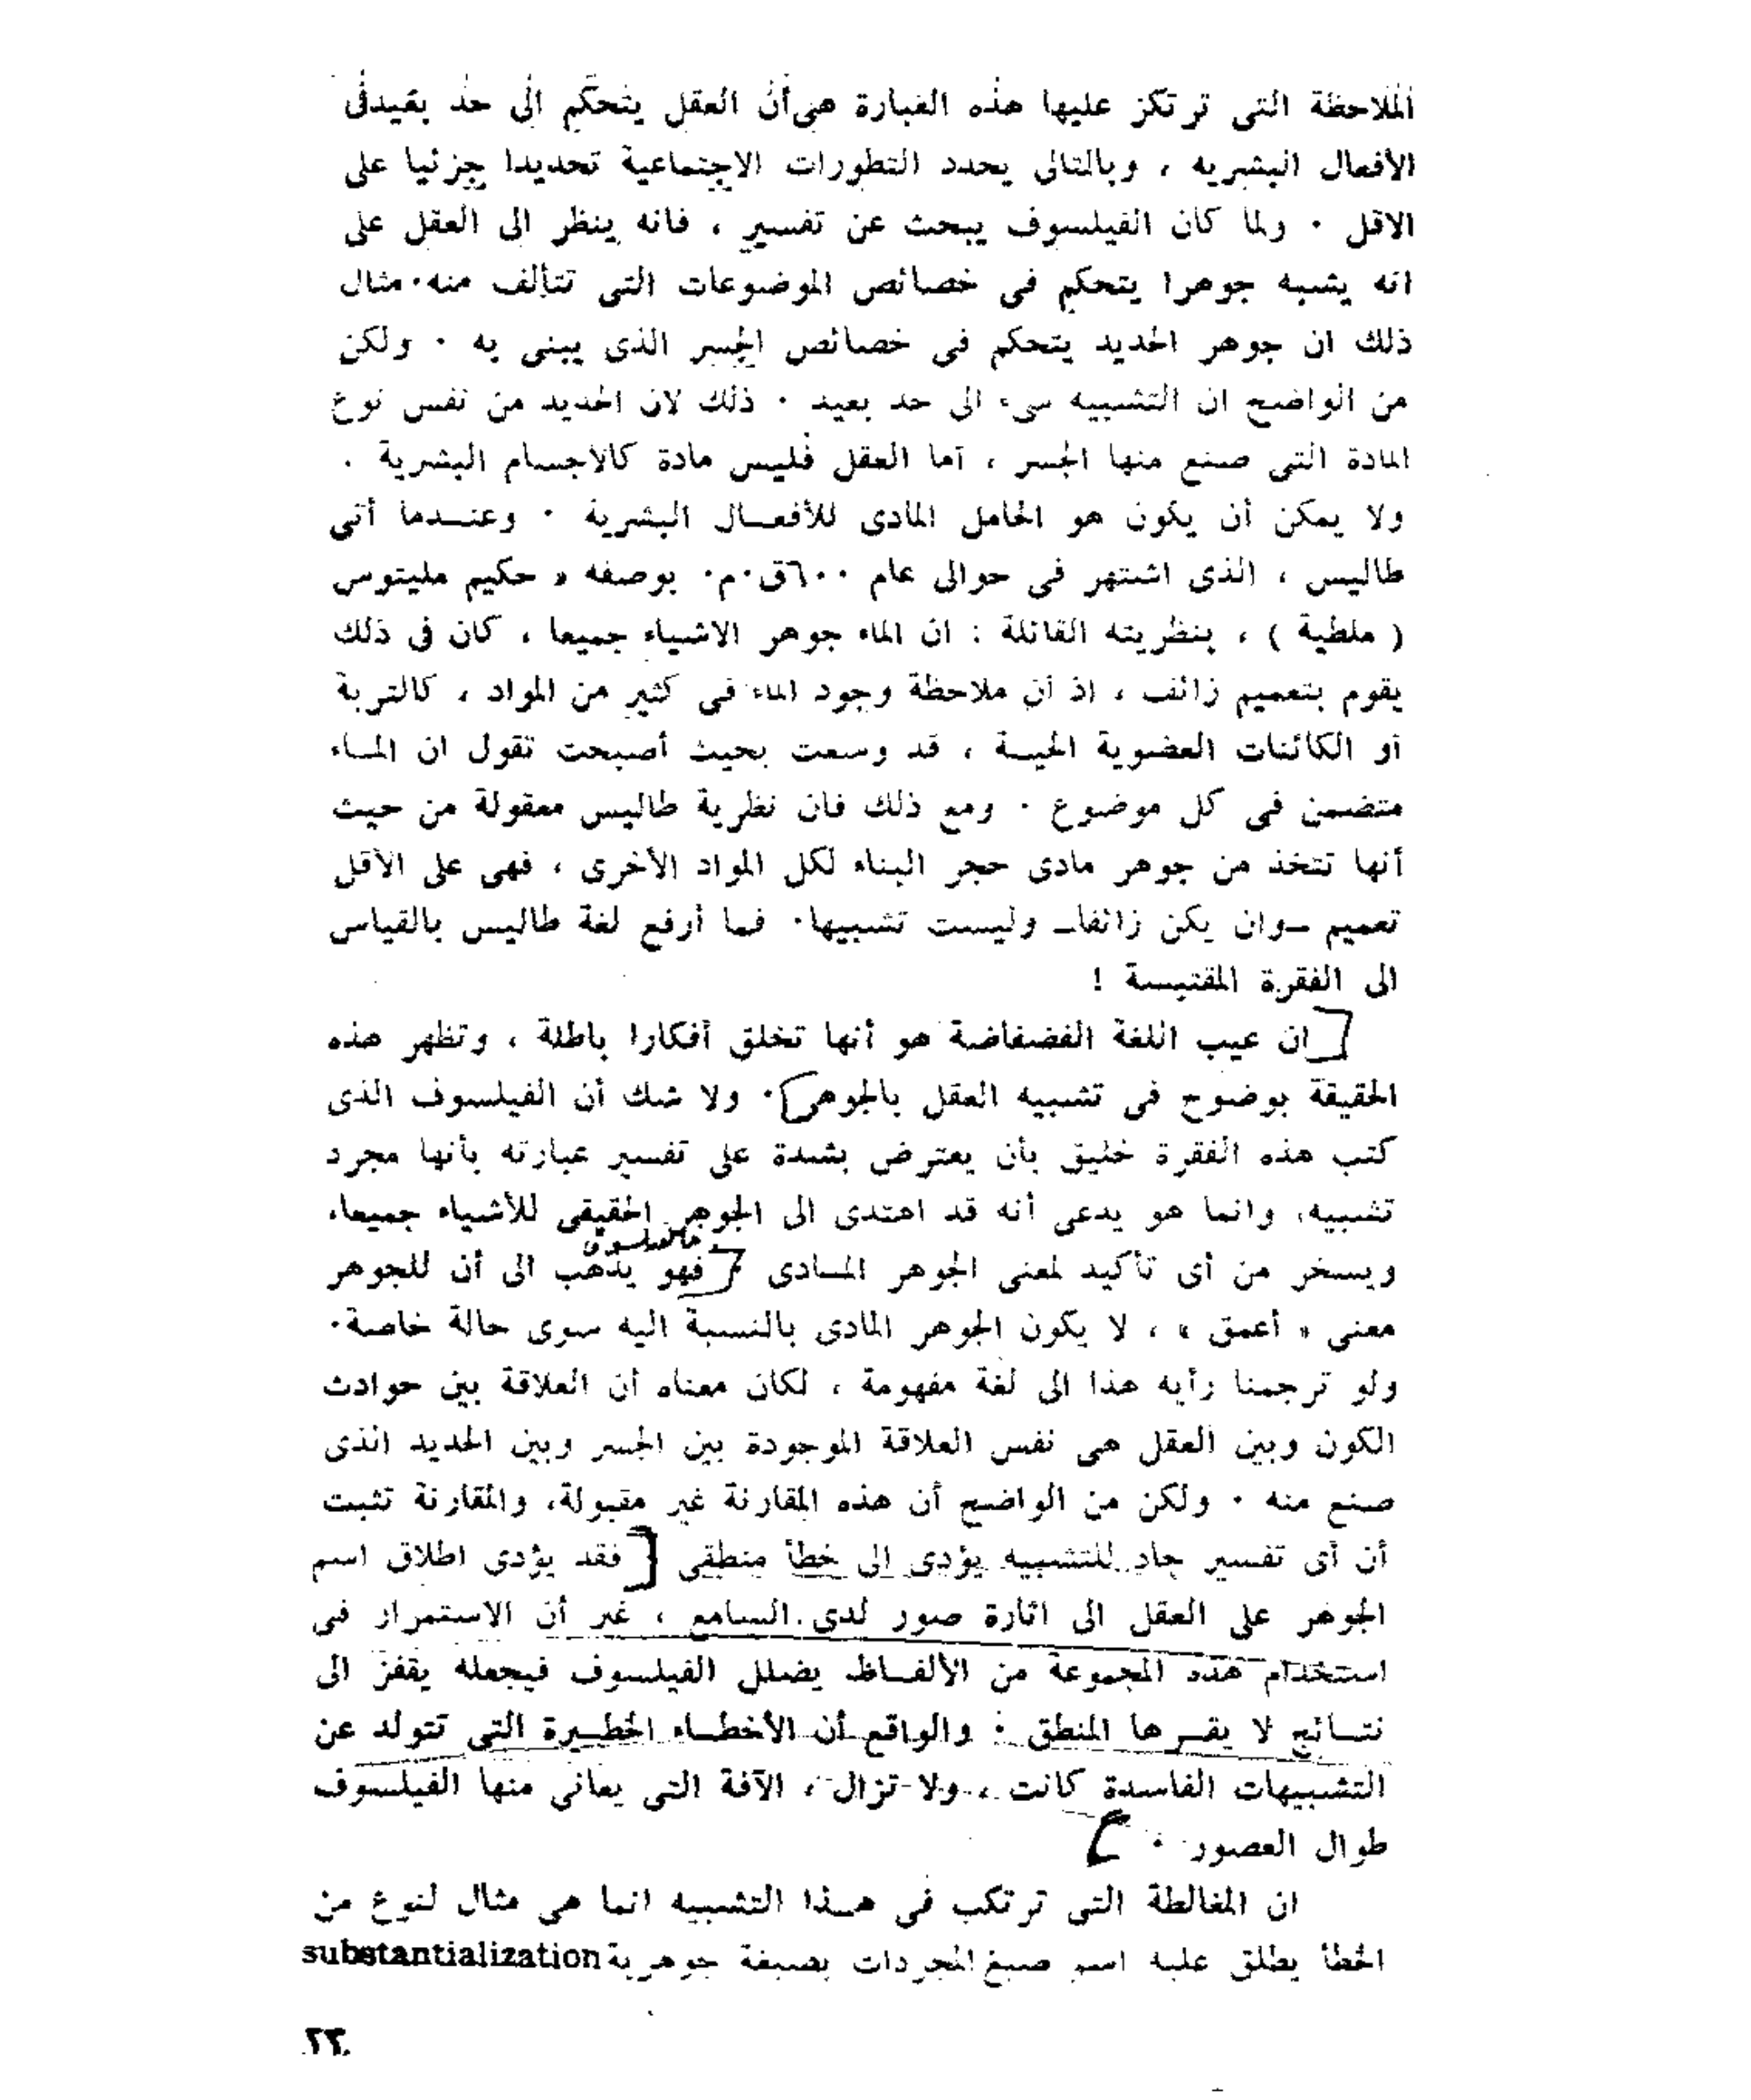 الملاحظة التى ترتكز عليها هذه العبارة هى أن العقل يتحكم الى حد بعيد فى
الأفعال البشريه ، وبالتالى يحدد التطورات الاجتماعية تحديدا جزئيا على
الاقل . ولما كان الفيلسوف يبحث عن تفسير ، فانه ينظر الى العقل على
انه يشبه جوهرا يتحكم فى خصائص الموضوعات التى تتألف منه . مثال
ذلك ان جوهر الحديد يتحكم فى خصائص الجسر الذى يبنى به . ولكن
من الواضح ان التشبيه سىء الى حد بعيد . ذلك لان الحديد من نفس نوع
المادة التى صنع منها الجسر ، أما العقل فليس مادة كالاجسام البشرية .
ولا يمكن أن يكون هو الحامل المادى للأفعـــال البشرية . وعنـــدما أتى
طاليس ، الذى اشتهر فى حوالى عام ٦٠٠ق.م. بوصفه « حكيم مليتوس
( ملطية ) ، بنظريته القائلة : ان الماء جوهر الاشياء جميعا ، كان فى ذلك
يقوم بتعميم زائف ، اذ أن ملاحظة وجود الماء فى كثير من المواد ، كالتربة
أو الكائنات العضوية الحيـــة ، قد وسعت بحيث أصبحت تقول ان المـــاء
متضمن فى كل موضوع . ومع ذلك فان نظرية طاليس معقولة من حيث
أنها تتخذ من جوهر مادى حجر البناء لكل المواد الأخرى ، فهى على الأقل
تعميم ــ وان يكن زائفا ــ وليست تشبيها . فما أرفع لغة طاليس بالقياس
الى الفقرة المقتبسة !
[ان عيب اللغة الفضفاضة هو أنها تخلق أفكارا باطلة ، وتظهر هذه
الحقيقة بوضوح فى تشبيه العقل بالجوهر]. ولا شك أن الفيلسوف الذى
كتب هذه الفقرة خليق بأن يعترض بشدة على تفسير عبارته بأنها مجرد
تشبيه، وانما هو يدعى أنه قد اهتدى الى الجوهر الحقيقى للأشياء جميعا،
فالفيلسوف
ويسخر من أى تأكيد لمعنى الجوهر المـــادى [فهو يذهب الى أن للجوهر
معنى « أعمق » ، لا يكون الجوهر المادى بالنسبة اليه سوى حالة خاصة .
ولو ترجمنا رأيه هذا الى لغة مفهومة ، لكان معناه أن العلاقة بين حوادث
الكون وبين العقل هى نفس العلاقة الموجودة بين الجسر وبين الحديد الذى
صنع منه . ولكن من الواضح أن هذه المقارنة غير مقبولة، والمقارنة تثبت
أن أى تفسير جاد للتشبيه يؤدى الى خطأ منطقى [فقد يؤدى اطلاق اسم
الجوهر على العقل الى اثارة صور لدى السامع ، غير أن الاستمرار فى
استخدام هذه المجموعة من الألفـــاظ يضلل الفيلسوف فيجعله يقفز الى
نتـــائج لا يقـــرها المنطق . والواقع أن الأخطـــاء الخطـــيرة التى تتولد عن
التشبيهات الفاسدة كانت ، ولا تزال ، الآفة التى يعانى منها الفيلسوف
طوال العصور . ]
ان المغالطة التى ترتكب فى هـــذا التشبيه انما هى مثال لنوع من
الخطأ يطلق عليه اسم صبغ المجردات بصبغة جوهرية substantialization
٢٣